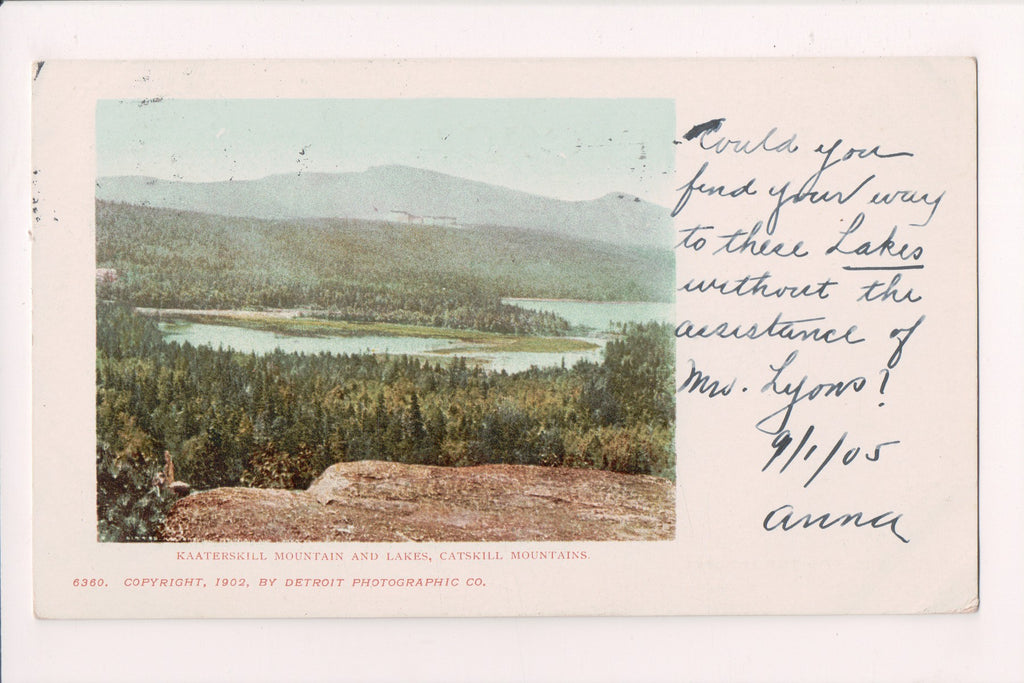 Could you
find your way
to these Lakes
without the
assistance of
Mrs. Lyons?
9/1/05
Anna
KAATERSKILL MOUNTAIN AND LAKES, CATSKILL MOUNTAINS.
6360. COPYRIGHT, 1902, BY DETROIT PHOTOGRAPHIC CO.